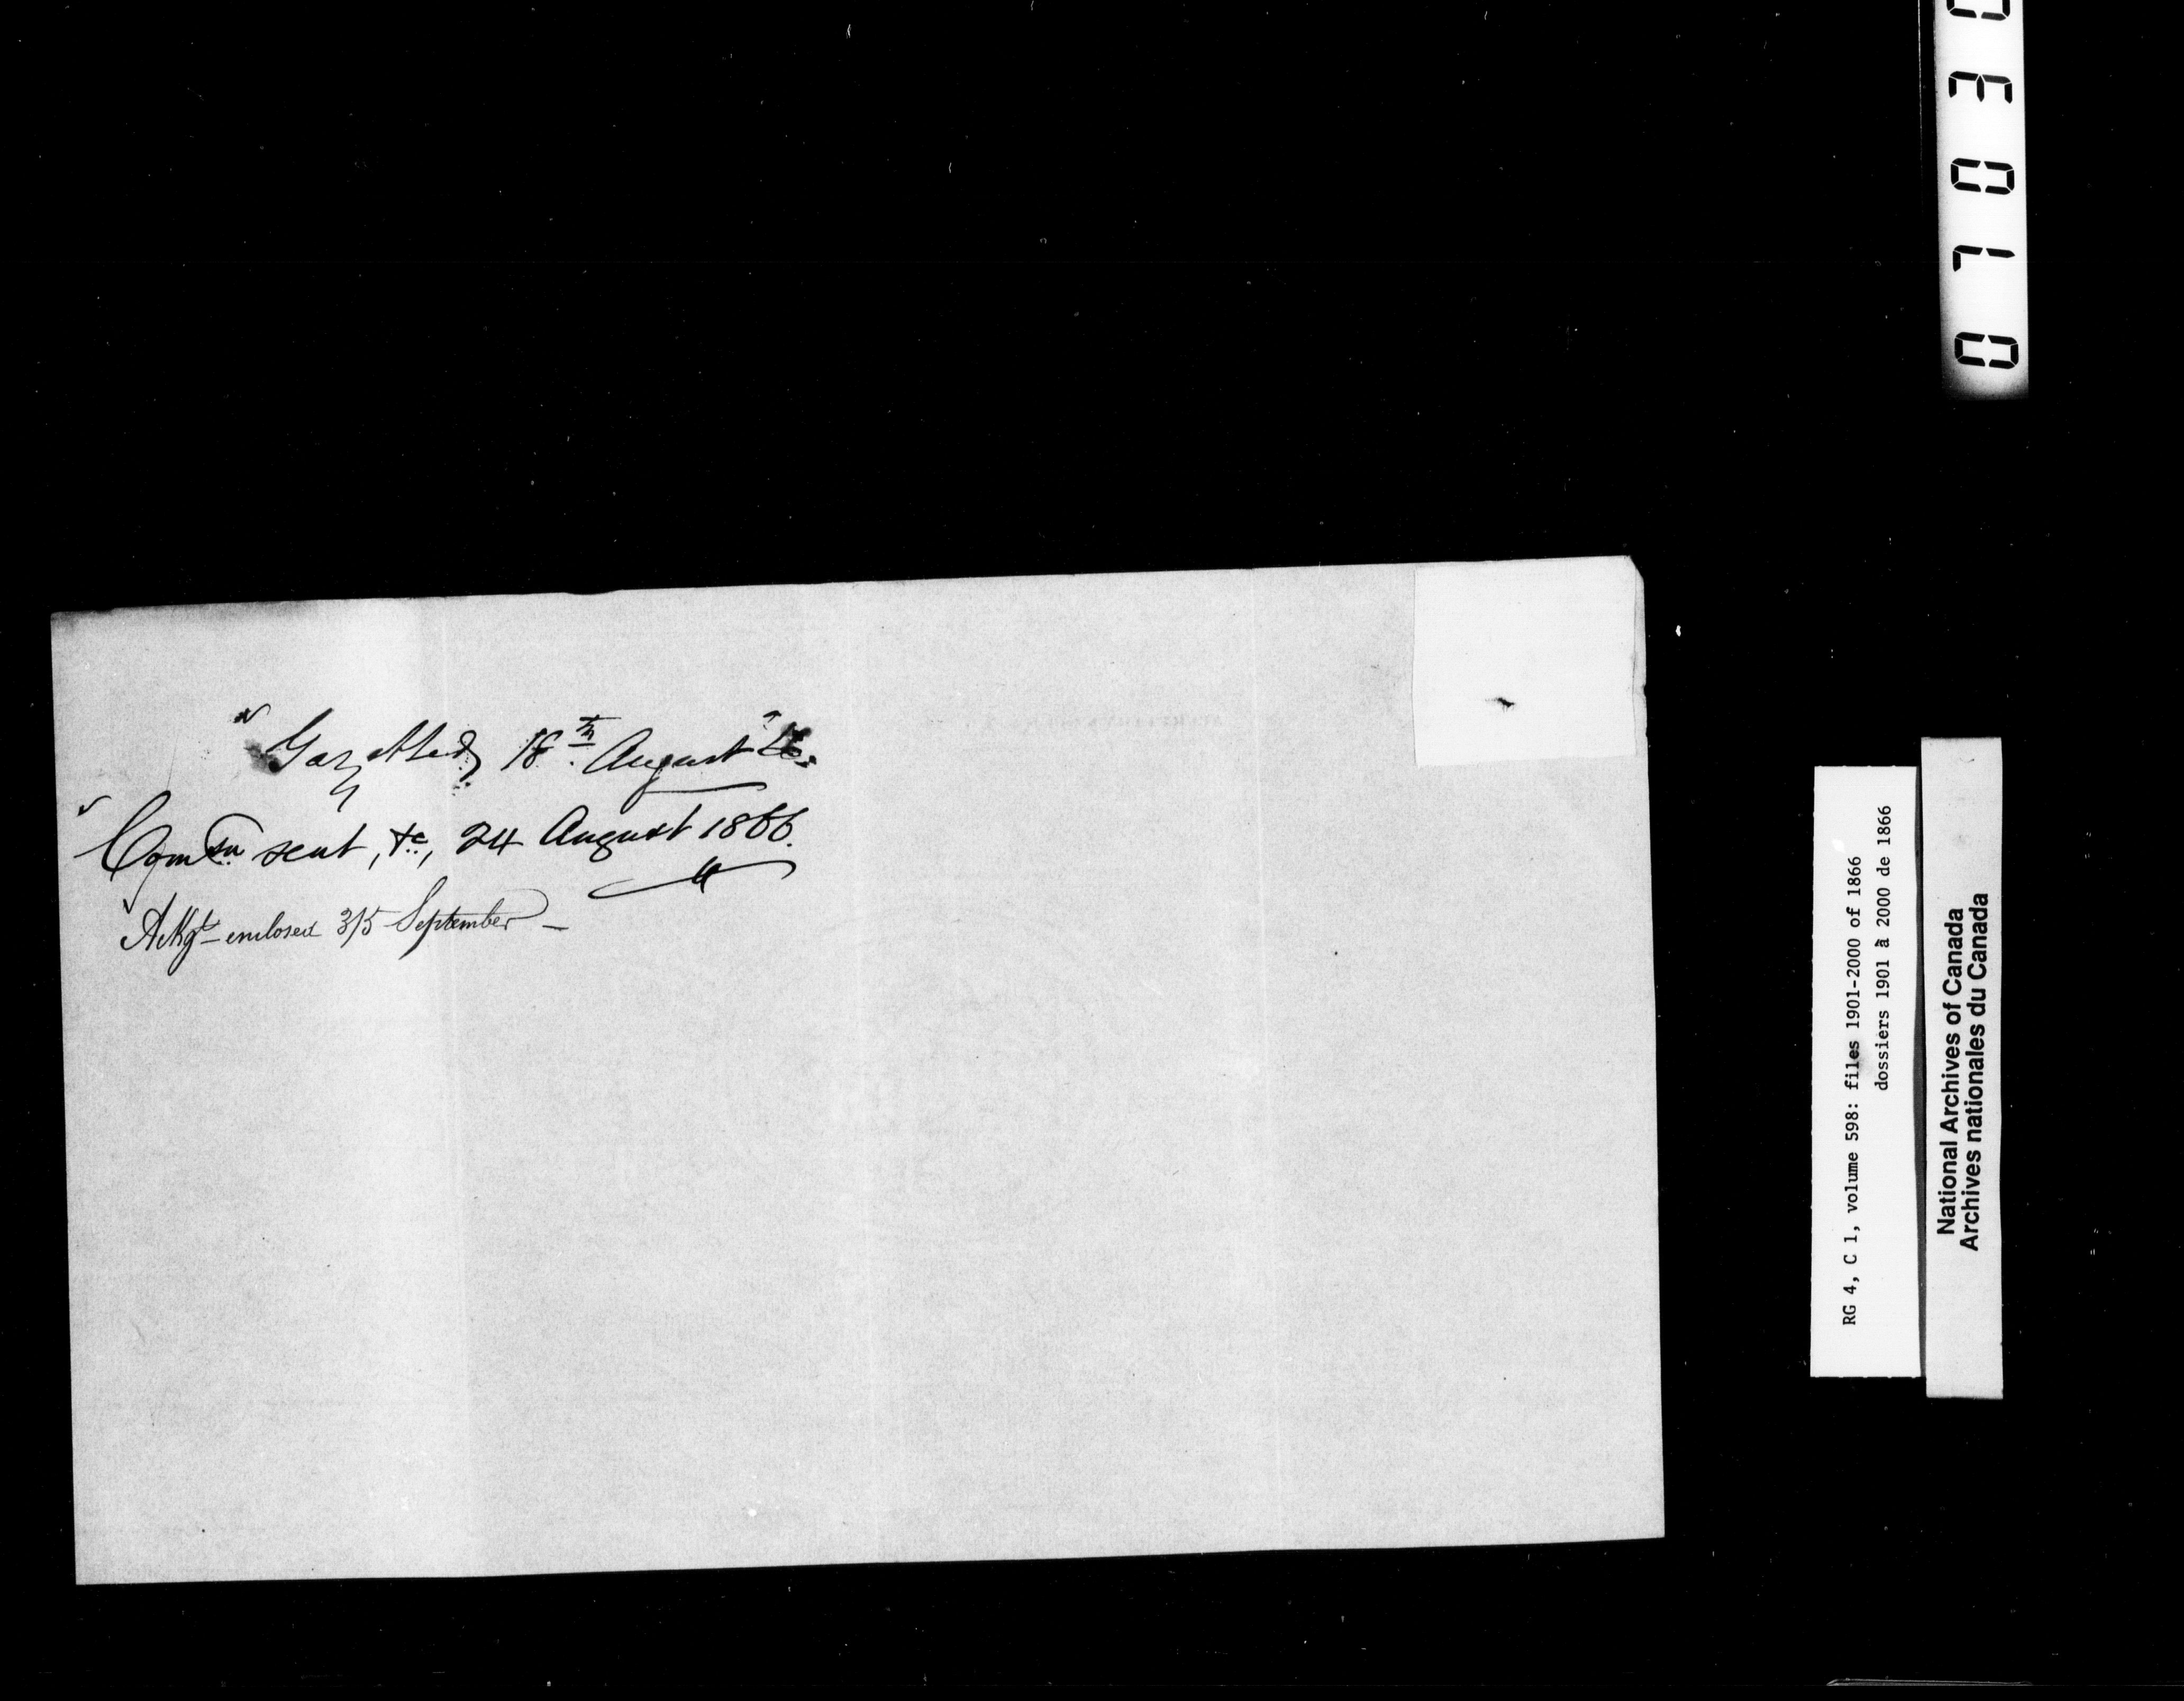 Gazetted 18th August
Comsn sent, &c, 24 August 1866.
Ackgt enclosed 3/5 September —
RG 4, C 1, volume 598: files 1901-2000 of 1866
dossiers 1901 à 2000 de 1866
National Archives of Canada
Archives nationales du Canada